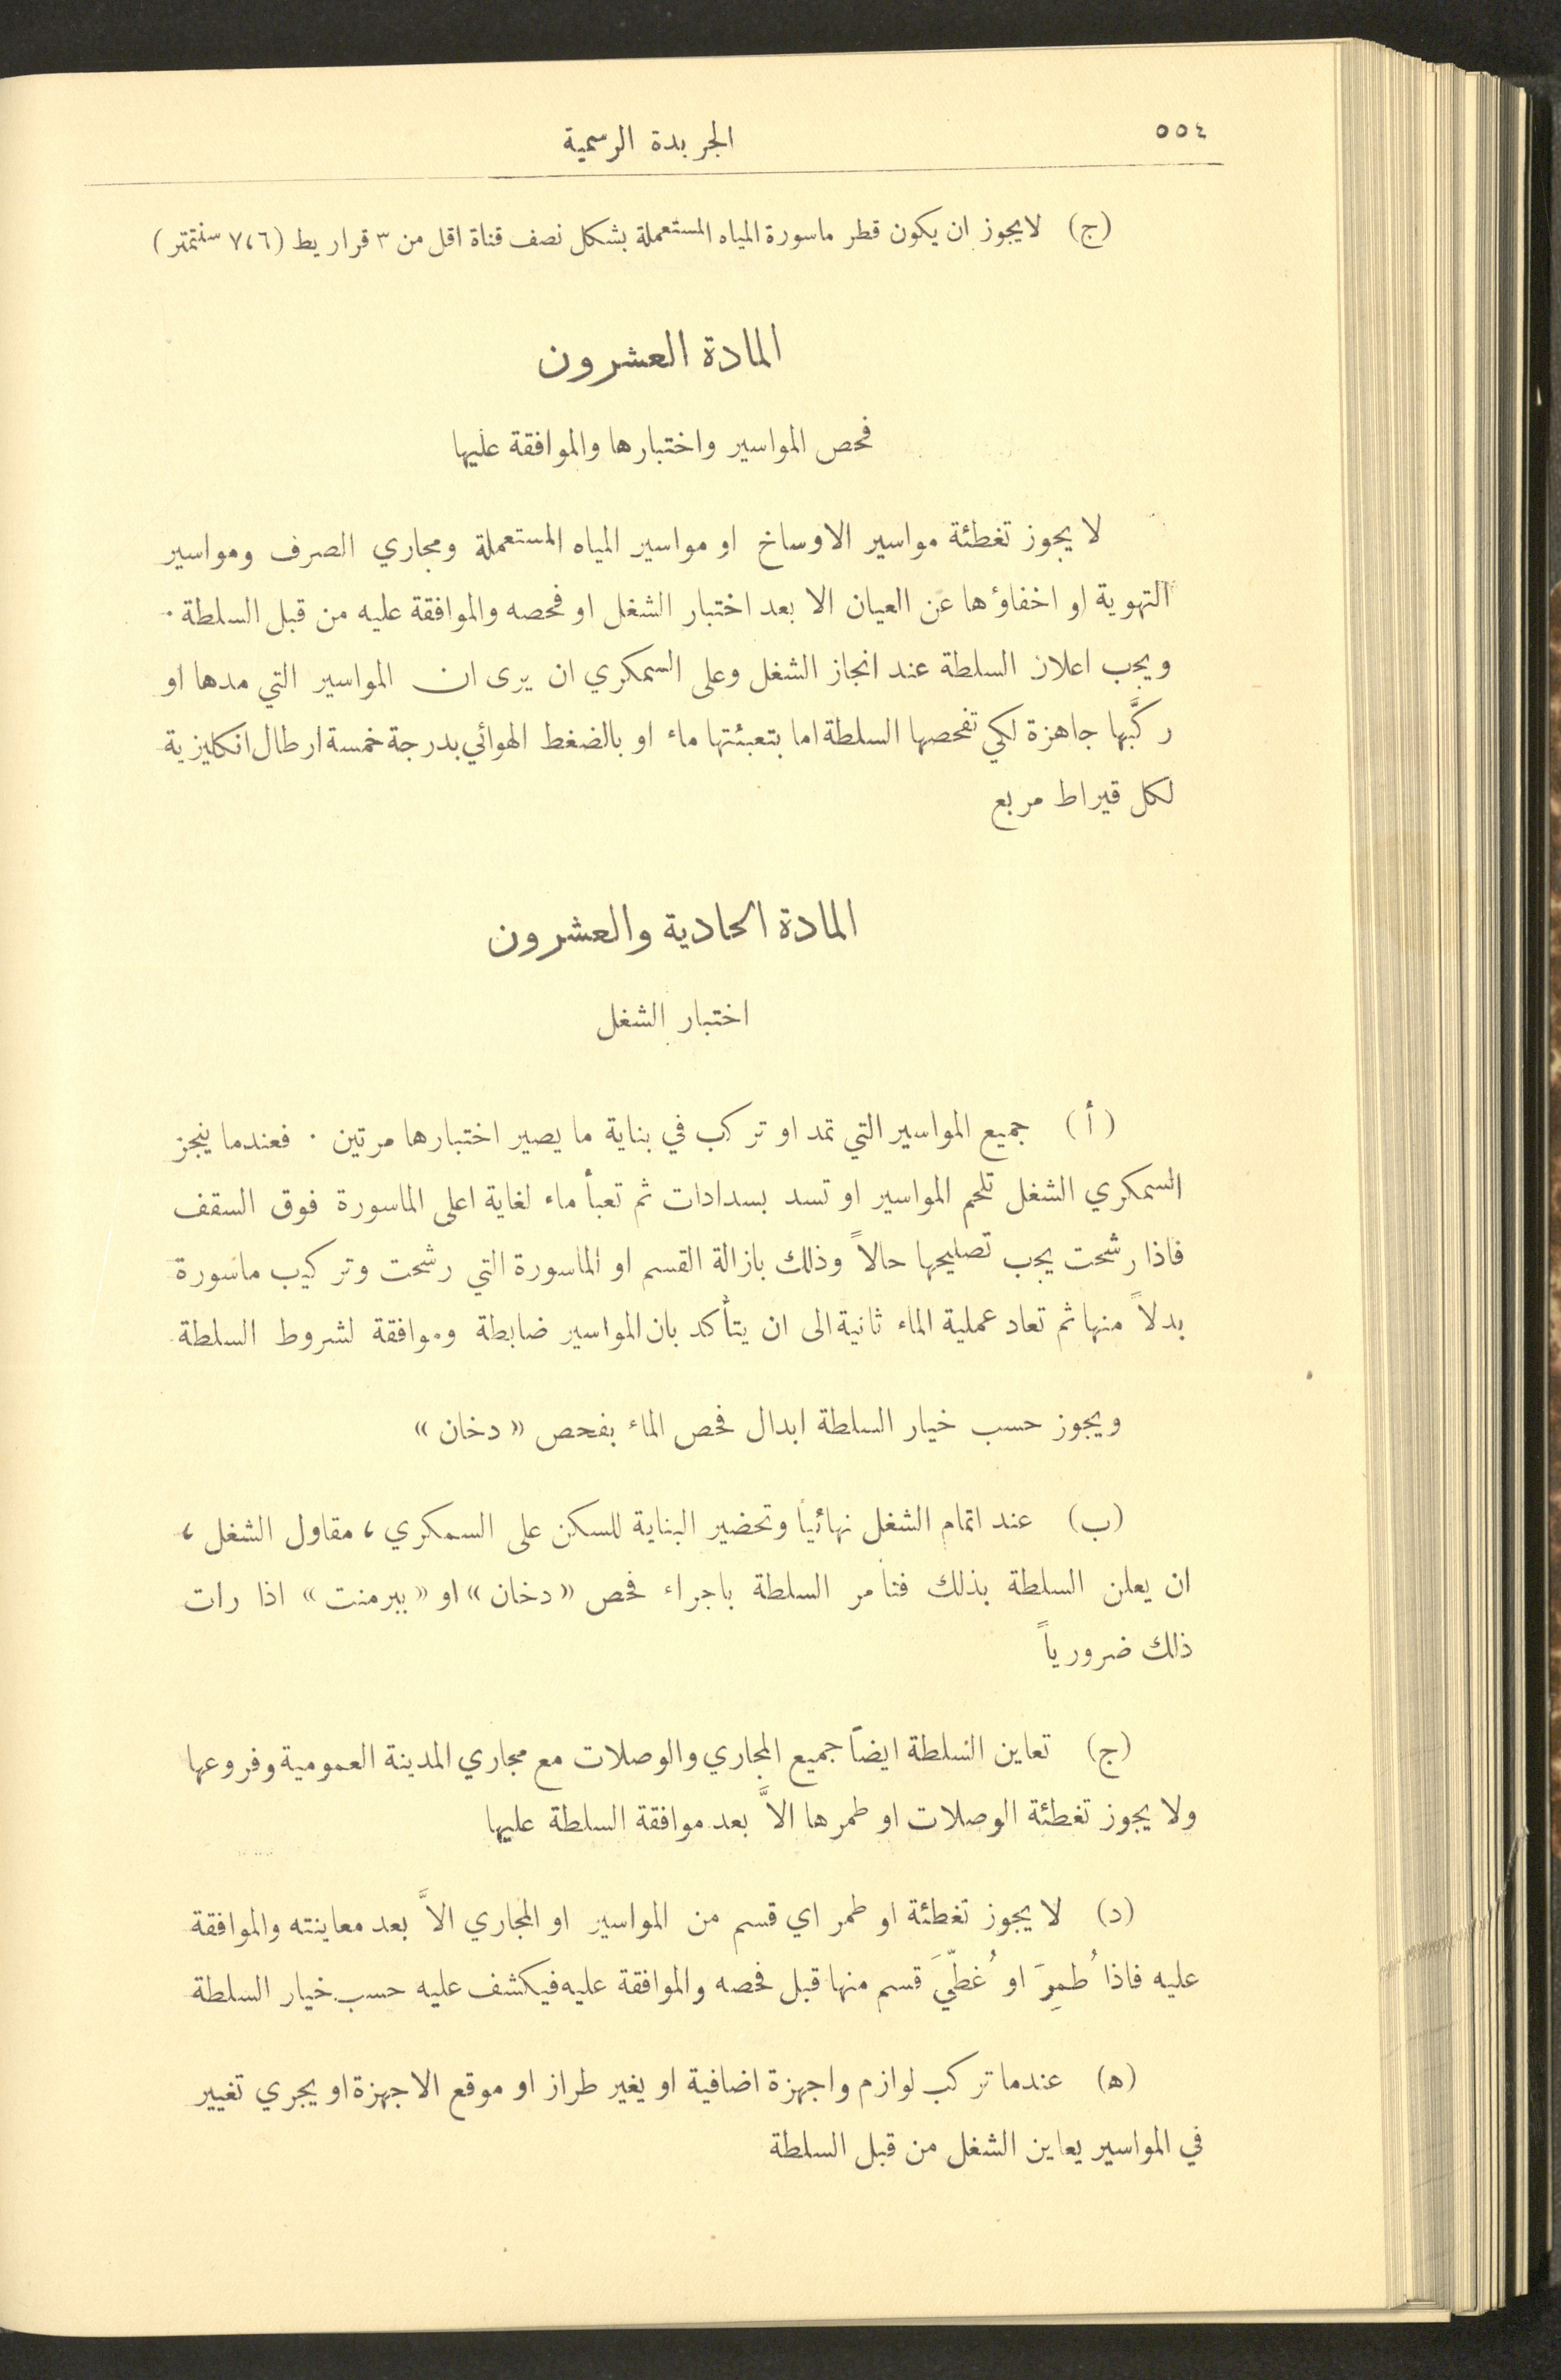 ٥٥٤
الجريدة الرسمية
(ج) لايجوز ان يكون قطر ماسورة المياه المستعملة بشكل نصف قناة اقل من ٣ قراريط (٧،٦ سنتمتر)
المادة العشرون
فحص المواسير واختبارها والموافقة عليها
لا يجوز تغطئة مواسير الاوساخ او مواسير المياه المستعملة ومجاري الصرف ومواسير
التهوية او اخفاؤها عن العيان الا بعد اختبار الشغل او فحصه والموافقة عليه من قبل السلطة .
ويجب اعلان السلطة عند انجاز الشغل وعلى السمكري ان يرى ان المواسير التي مدها او
ركَّبها جاهزة لكي تفحصها السلطة اما بتعبئتها ماء او بالضغط الهوائي بدرجة خمسة ارطال انكليزية
لكل قيراط مربع
المادة الحادية والعشرون
اختبار الشغل
(أ) جميع المواسير التي تمد او تركب في بناية ما يصير اختبارها مرتين . فعندما ينجز
السمكري الشغل تلحم المواسير او تسد بسدادات ثم تعبأ ماء لغاية اعلى الماسورة فوق السقف
فاذا رشحت يجب تصليحها حالاً وذلك بازالة القسم او الماسورة التي رشحت وتركيب ماسورة
بدلاً منها ثم تعاد عملية الماء ثانية الى ان يتأكد بان المواسير ضابطة وموافقة لشروط السلطة
ويجوز حسب خيار السلطة ابدال فحص الماء بفحص «دخان»
(ب) عند اتمام الشغل نهائياً وتحضير البناية للسكن على السمكري ، مقاول الشغل ،
ان يعلن السلطة بذلك فتامر السلطة باجراء فحص «دخان» او «ببرمنت» اذا رات
ذلك ضرورياً
(ج) تعاين السلطة ايضاً جميع المجاري والوصلات مع مجاري المدينة العمومية وفروعها
ولا يجوز تغطئة الوصلات او طمرها الاَّ بعد موافقة السلطة عليها
(د) لا يجوز تغطئة او طمر اي قسم من المواسير او المجاري الاَّ بعد معاينته والموافقة
عليه فاذا طُمِرَ او غُطِّيَ قسم منها قبل فحصه والموافقة عليه فيكشف عليه حسب خيار السلطة
(ه) عندما تركب لوازم واجهزة اضافية او يغير طراز او موقع الاجهزة او يجري تغيير
في المواسير يعاين الشغل من قبل السلطة